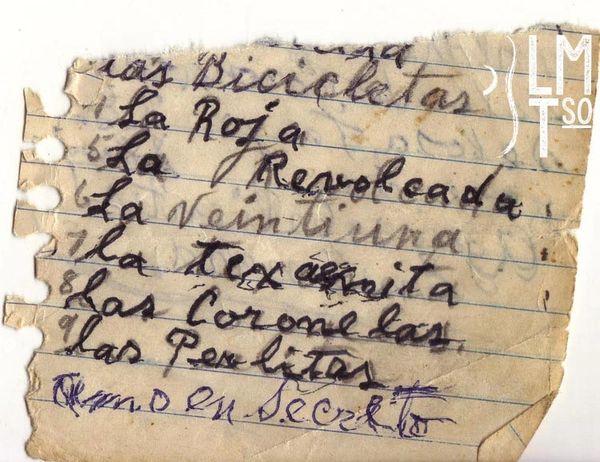 Las Bicicletas
4 La Roja
5 La Revolcada
6 La Veintiuna
7 la texanita
8 Las Coronelas
9 las Perlitas
Amo en Secreto
LM
TSO